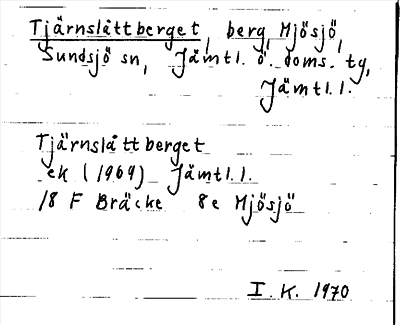 Tjärnslåttberget, berg, Mjösjö,
Sundsjö sn, Jämtl. ö. doms. tg,
Jämtl. l.
Tjärnslåttberget
ek (1969) Jämtl. l.
18 F Bräcke 8e Mjösjö
I. K. 1970